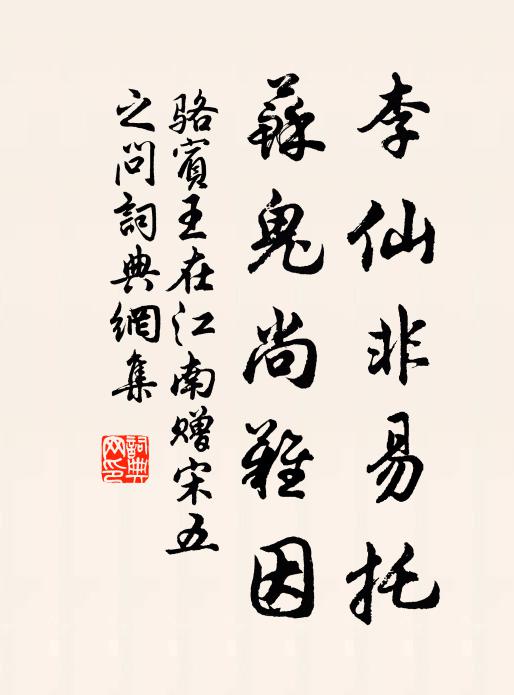 李仙非易托
蘇鬼尚難因
骆賓王在江南赠宋五
之问詞典網集
詞典
网印